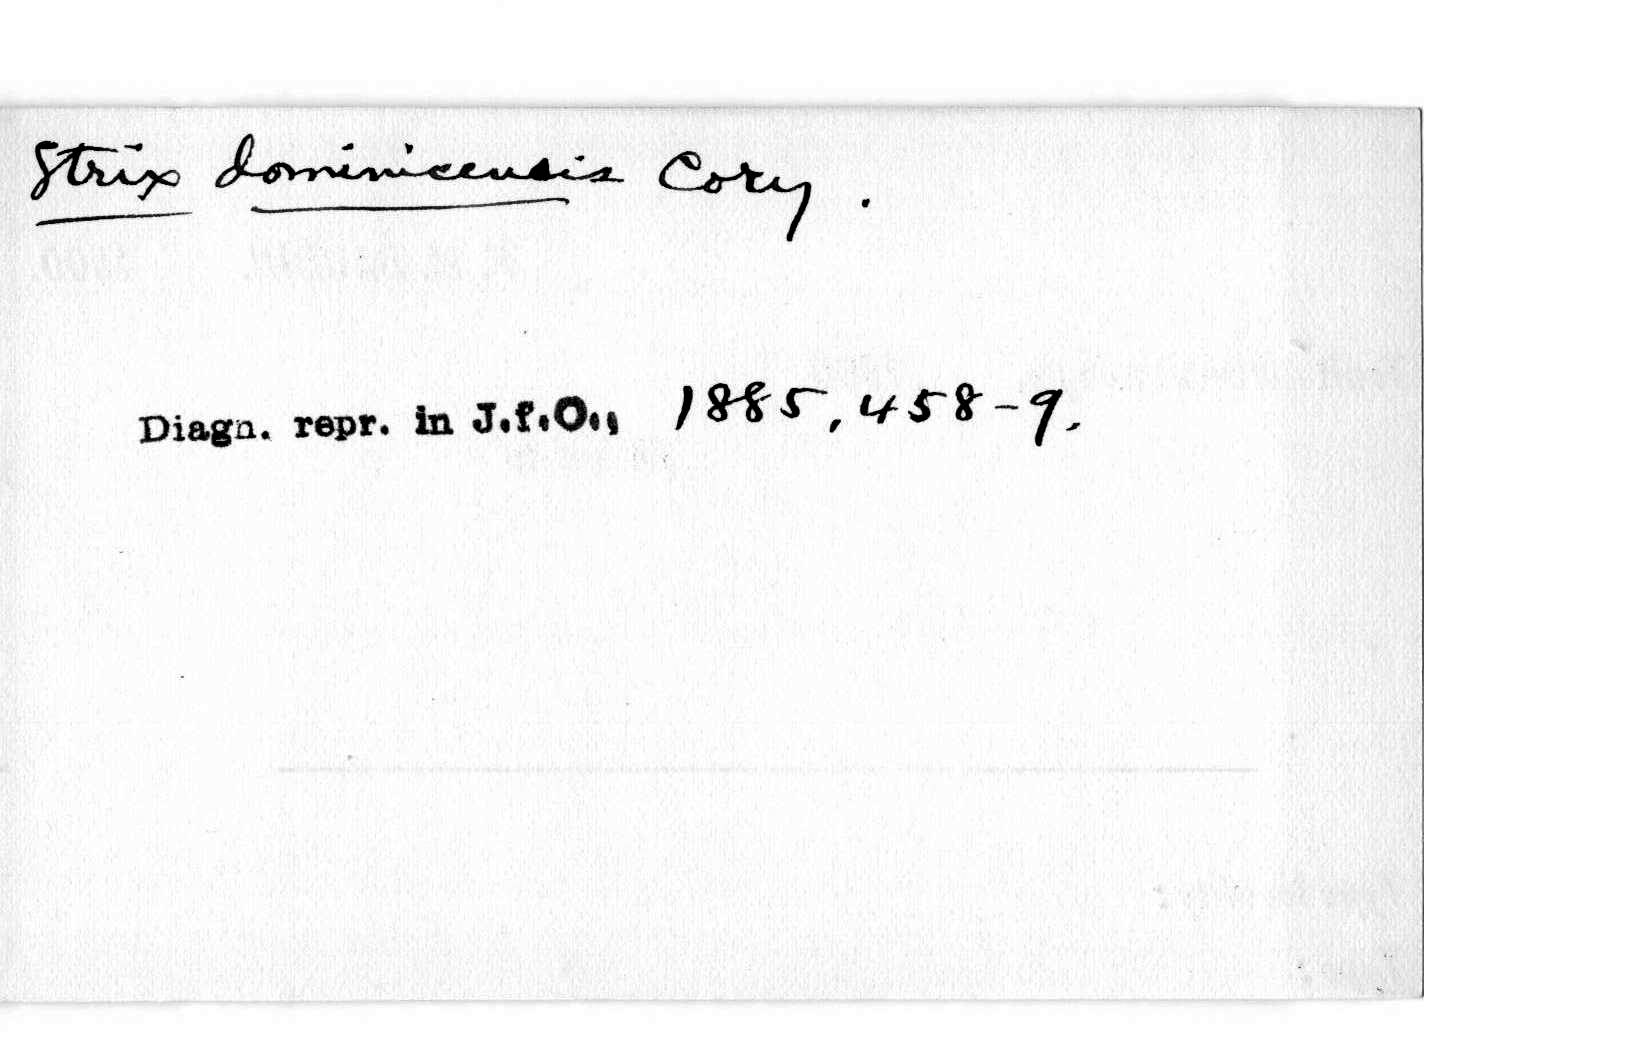 Strix dominicensis Cory.
Diagn. repr. in J.f.O., 1885, 458-9.